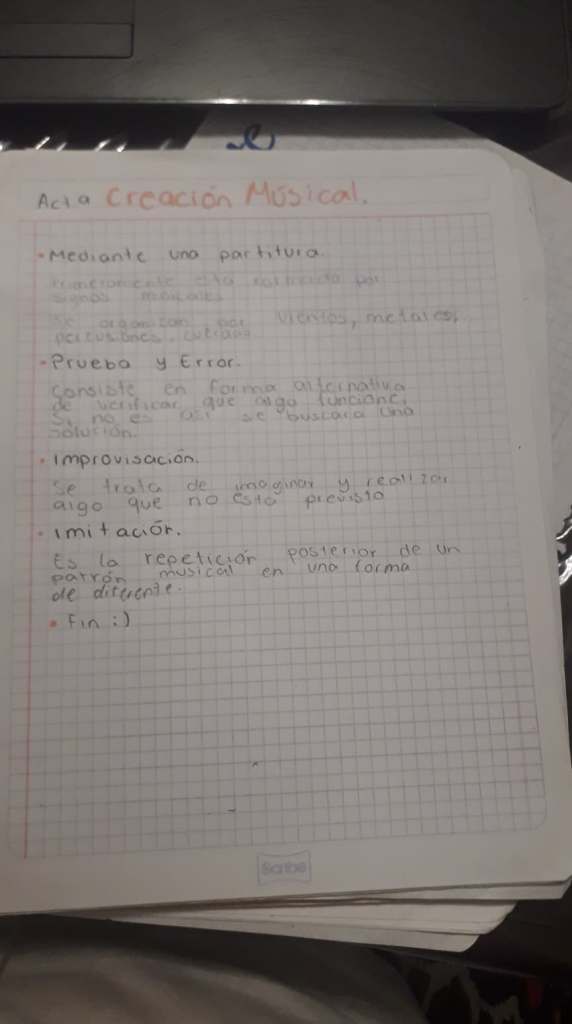 Act a Creación Músical.
• Mediante una partitura.
por
signos musicales
Se organizan por vientos, metales,
percusiones, cuerdas
• Prueba y Error.
Consiste en forma alternativa
de verificar que algo funcione,
Si no es así se buscará una
solución.
• Improvisación.
Se trata de imaginar y realizar
algo que no está previsto
• Imitación.
Es la repetición posterior de un
patrón musical en una forma
de diferente.
• Fin :)
Scribe